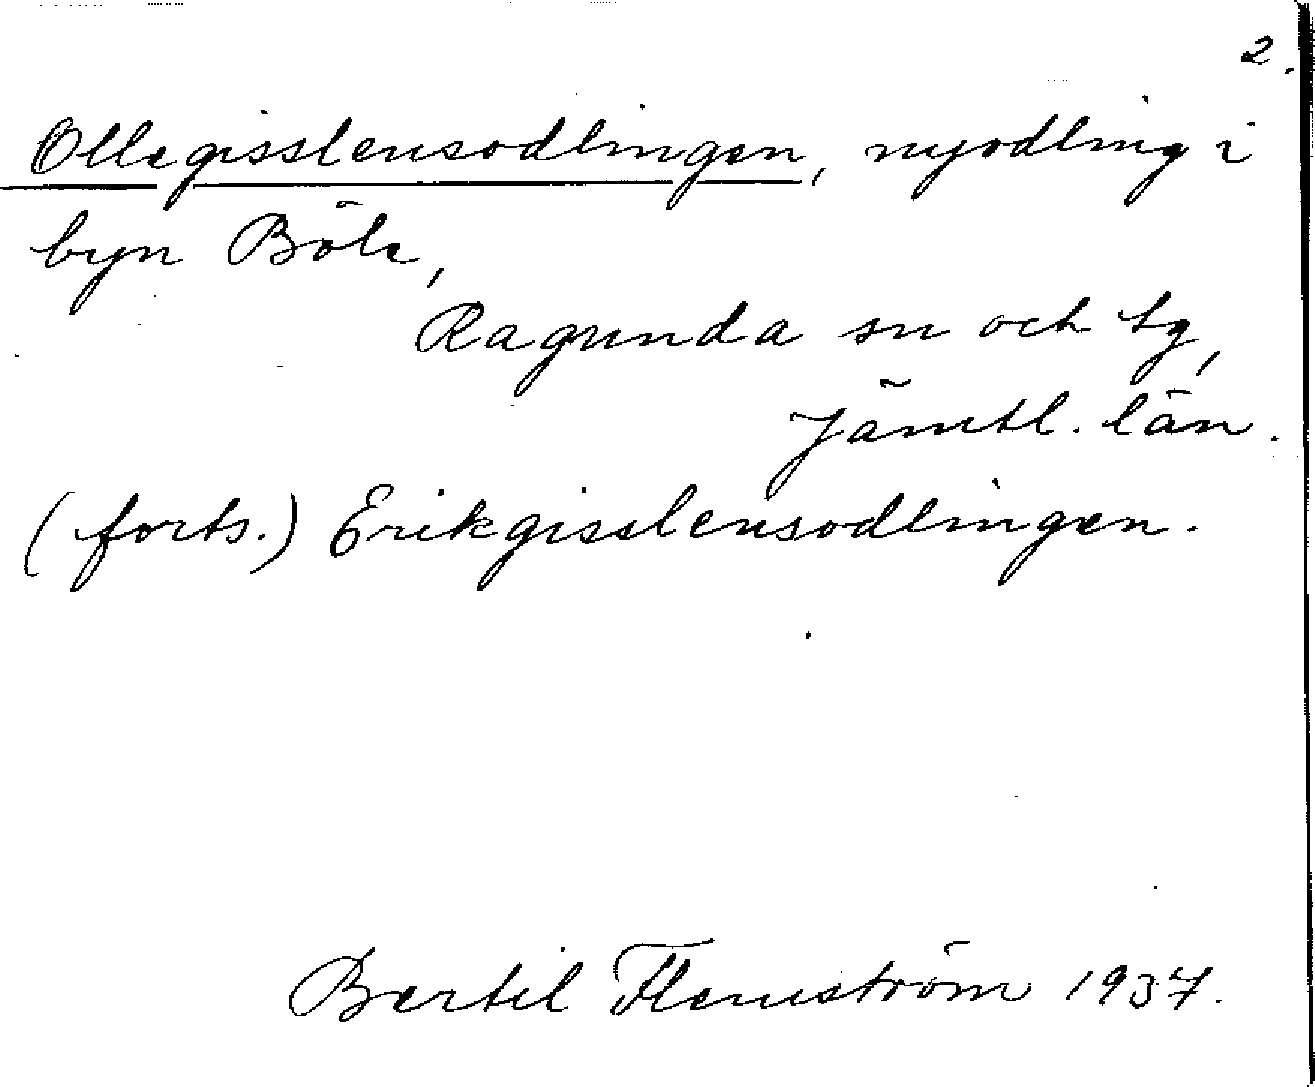 2.
Ollegisslensodlingen, nyodling i
byn Böle,
Ragunda sn och tg,
Jämtl. län.
(forts.) Erikgisslensodlingen.
Bertil Flemström 1937.